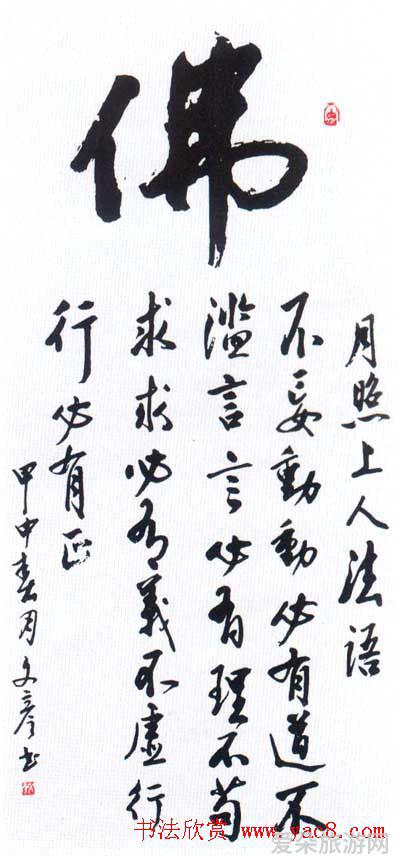 佛
月照上人法语
不妄動動必有道不
滥言言必有理不苟
求求必有義不虚行
行必有正
甲申春月文彦书
书法欣赏 www.yac8.com
爱来旅游网